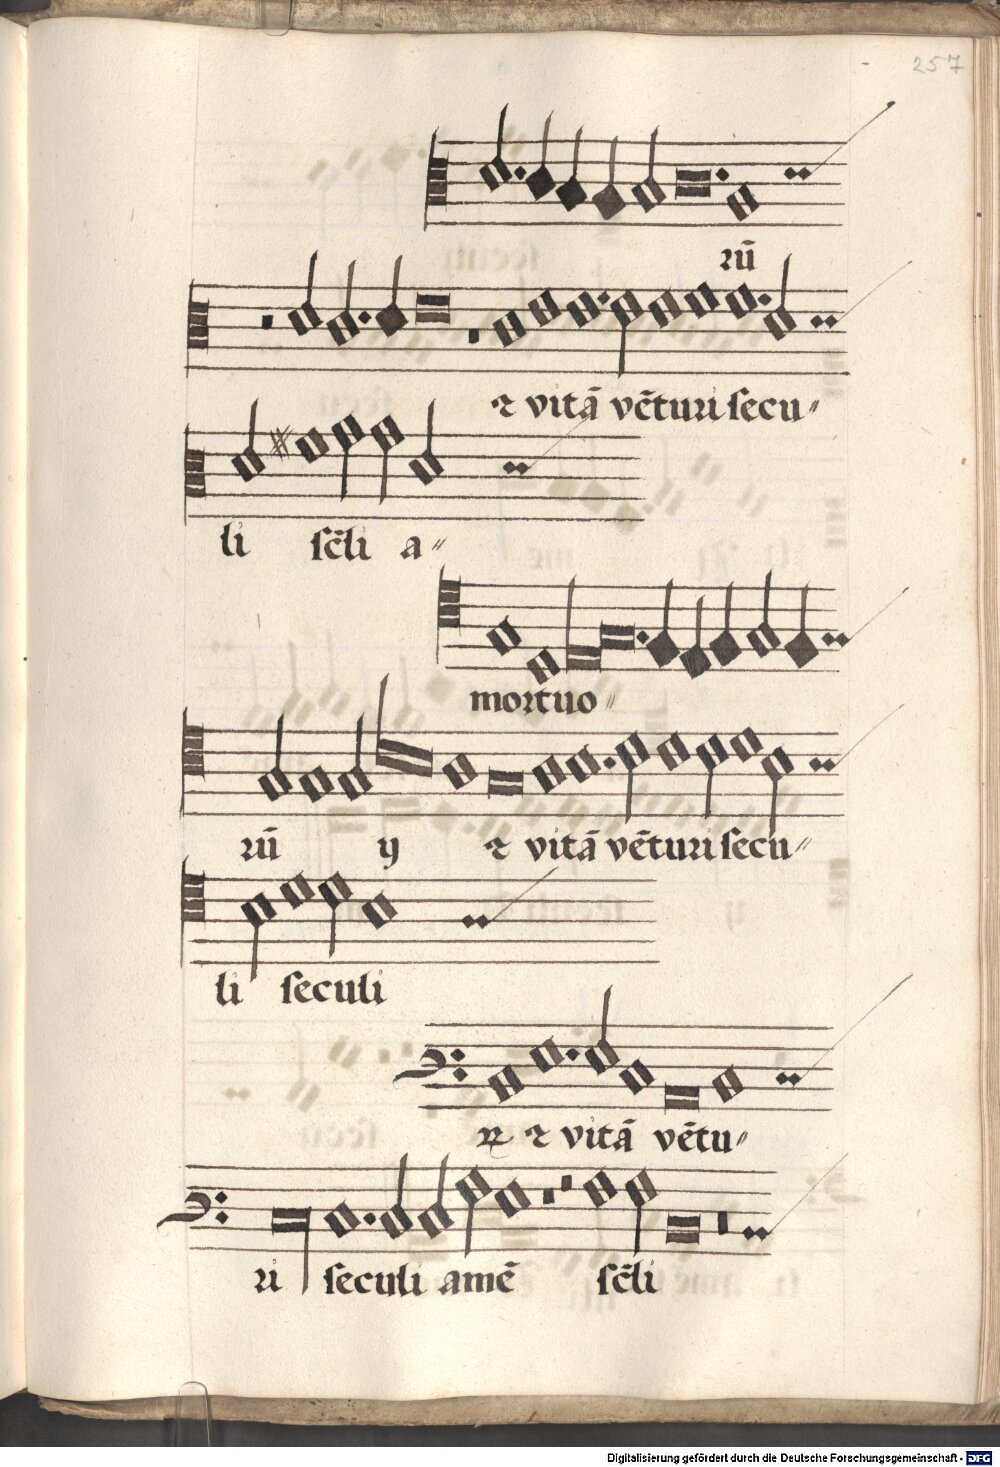 257
rū
⁊ vitā vētuꝛi ſecu〃
li ſc̄li a〃
moꝛtuo〃
ꝛū ij ⁊ vitā vētuꝛi ſecu〃
li ſeculi
ꝝ ⁊ vitā vētu〃
ꝛi ſeculi amē ſc̄li
Digitalisierung gefördert durch die Deutsche Forschungsgemeinschaft - DFG